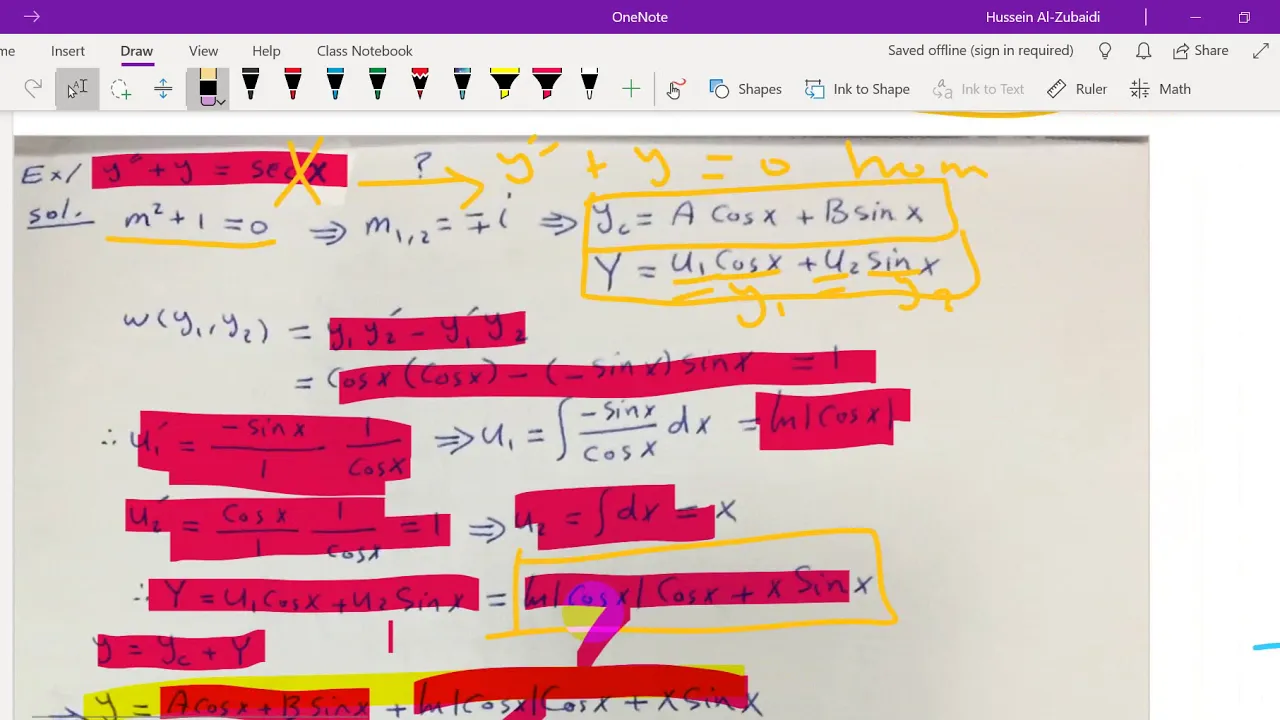 OneNote
Hussein Al-Zubaidi
Insert Draw View Help Class Notebook
Saved offline (sign in required) Share
Shapes Ink to Shape Ink to Text Ruler Math
Ex/ y″ + y = sec x ? y″ + y = 0 hom
sol. m² + 1 = 0 ⇒ m₁,₂ = ∓ i ⇒ y_c = A Cosx + B sin x
Y = u₁ Cosx + u₂ sin x
y₁ y₂
w(y₁, y₂) = y₁ y₂′ − y₁′ y₂
= Cosx (Cosx) − (−sinx) sinx = 1
∴ u₁′ = -sinx/1 1/cosx ⇒ u₁ = ∫ -sinx/cosx dx = ln|Cosx|
u₂′ = Cosx/1 1/cosx = 1 ⇒ u₂ = ∫dx = x
∴ Y = u₁Cosx + u₂ Sinx = ln|Cosx| Cosx + x Sinx
?
y = y_c + Y
⇒ y = A cosx + B sinx + ln|Cosx| Cosx + x Sinx